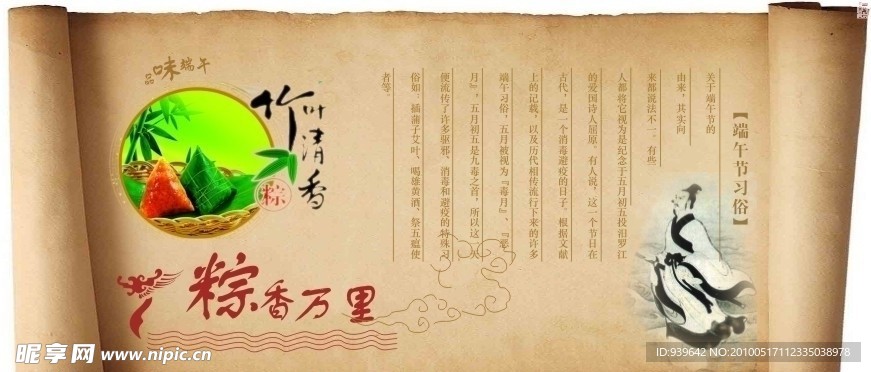 品味端午
竹叶清香
粽
粽香万里
【端午节习俗】
关于端午节的
由来，其实向
来都说法不一。有些
人都将它视为是纪念于五月初五投汨罗江
的爱国诗人屈原。有人说，这一个节日在
古代，是一个消毒避疫的日子。根据文献
上的记载，以及历代相传流行下来的许多
端午习俗，五月被视为『毒月』、『恶
月』。五月初五是九毒之首，所以这一天
便流传了许多驱邪、消毒和避疫的特殊习
俗如：插蒲子艾叶、喝雄黄酒、祭五瘟使
者等。
昵享网 www.nipic.cn
ID:939642 NO:20100517112335038978